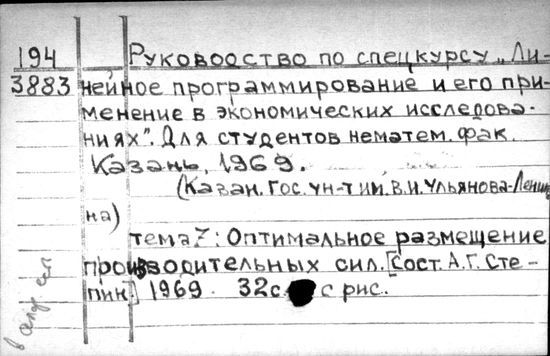 194 Руководство по спецкурсу „Ли-
3883 нейное программирование и его при-
менение в экономических исследова-
ниях". Для студентов нематем. фак.
Казань, 1969.
(Казан. Гос. ун-т им. В.И. Ульянова-Ленин
на)
тема 7: Оптимальное размещение
производительных сил. [Сост. А.Г. Сте-
пин] 1969. 32с. с рис.